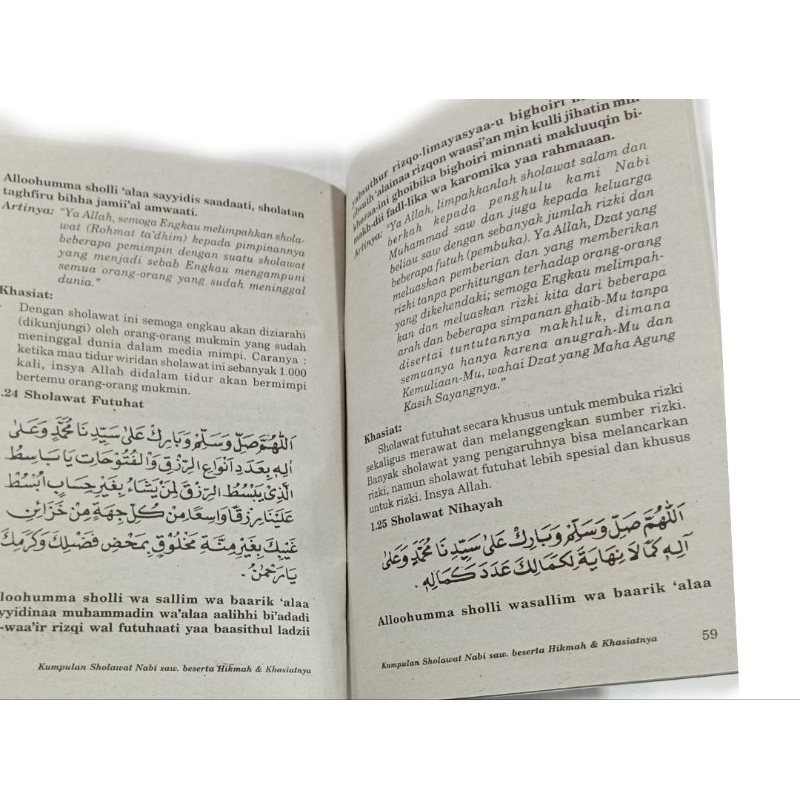 Alloohumma sholli 'alaa sayyidis saadaati, sholatan
taghfiru bihha jamii'al amwaati.
Artinya: "Ya Allah, semoga Engkau melimpahkan shola-
wat (Rohmat ta'dhim) kepada pimpinannya
beberapa pemimpin dengan suatu sholawat
yang menjadi sebab Engkau mengampuni
semua orang-orang yang sudah meninggal
dunia."
Khasiat:
Dengan sholawat ini semoga engkau akan diziarahi
(dikunjungi) oleh orang-orang mukmin yang sudah
meninggal dunia dalam media mimpi. Caranya :
ketika mau tidur wiridan sholawat ini sebanyak 1.000
kali, insya Allah didalam tidur akan bermimpi
bertemu orang-orang mukmin.
.24 Sholawat Futuhat
اَللّٰهُمَّ صَلِّ وَسَلِّمْ وَبَارِكْ عَلَى سَيِّدِنَا مُحَمَّدٍ وَعَلَى
اٰلِهِ بِعَدَدِ اَنْوَاعِ الرِّزْقِ وَالْفُتُوحَاتِ يَا بَاسِطُ
الَّذِيْ يَبْسُطُ الرِّزْقَ لِمَنْ يَشَاءُ بِغَيْرِ حِسَابٍ اُبْسُطْ
عَلَيْنَا رِزْقًا وَاسِعًا مِنْ كُلِّ جِهَةٍ مِنْ خَزَائِنِ
غَيْبِكَ بِغَيْرِ مِنَّةِ مَخْلُوْقٍ بِمَحْضِ فَضْلِكَ وَكَرَمِكَ
يَا رَحْمٰنُ .
lloohumma sholli wa sallim wa baarik 'alaa
yyidinaa muhammadin wa'alaa aalihhi bi'adadi
-waa'ir rizqi wal futuhaati yaa baasithul ladzii
Kumpulan Sholawat Nabi saw. beserta Hikmah & Khasiatnya
yabsuthur rizqo-limayasyaa-u bighoiri
'alainaa rizqon waasi'an min kulli jihatin min
khozaa-ini ghoibika bighoiri minnati makluuqin bi-
makh-dii fadl-lika wa karomika yaa rahmaaan.
Artinya: "Ya Allah, limpahkanlah sholawat salam dan
berkah kepada penghulu kami Nabi
Muhammad saw dan juga kepada keluarga
beliau saw dengan sebanyak jumlah rizki dan
beberapa futuh (pembuka). Ya Allah, Dzat yang
meluaskan pemberian dan yang memberikan
rizki tanpa perhitungan terhadap orang-orang
yang dikehendaki; semoga Engkau melimpah-
kan dan meluaskan rizki kita dari beberapa
arah dan beberapa simpanan ghaib-Mu tanpa
disertai tuntutannya makhluk, dimana
semuanya hanya karena anugrah-Mu dan
Kemuliaan-Mu, wahai Dzat yang Maha Agung
Kasih Sayangnya."
Khasiat:
Sholawat futuhat secara khusus untuk membuka rizki
sekaligus merawat dan melanggengkan sumber rizki.
Banyak sholawat yang pengaruhnya bisa melancarkan
rizki, namun sholawat futuhat lebih spesial dan khusus
untuk rizki. Insya Allah.
1.25 Sholawat Nihayah
اَللّٰهُمَّ صَلِّ وَسَلِّمْ وَبَارِكْ عَلَى سَيِّدِنَا مُحَمَّدٍ وَعَلَى
اٰلِهِ كَمَا لَا نِهَايَةَ لِكَمَالِكَ عَدَدَ كَمَالِهِ .
Alloohumma sholli wasallim wa baarik 'alaa
59
Kumpulan Sholawat Nabi saw. beserta Hikmah & Khasiatnya